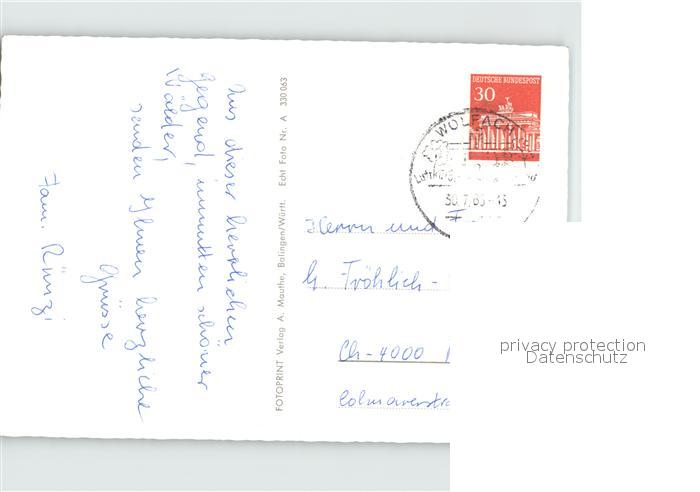 Aus dieser herrlichen
Gegend, inmitten schöner
Wälder,
senden Ihnen herzliche
Grüsse
Fam. Künzi
FOTOPRINT Verlag A. Mauthe, Balingen/Württ. Echt Foto Nr. A 330063
DEUTSCHE BUNDESPOST
30
WOLFACH
Herrn und F
h. Fröhlich-
Ch-4000
Colmarerstra
privacy protection
Datenschutz